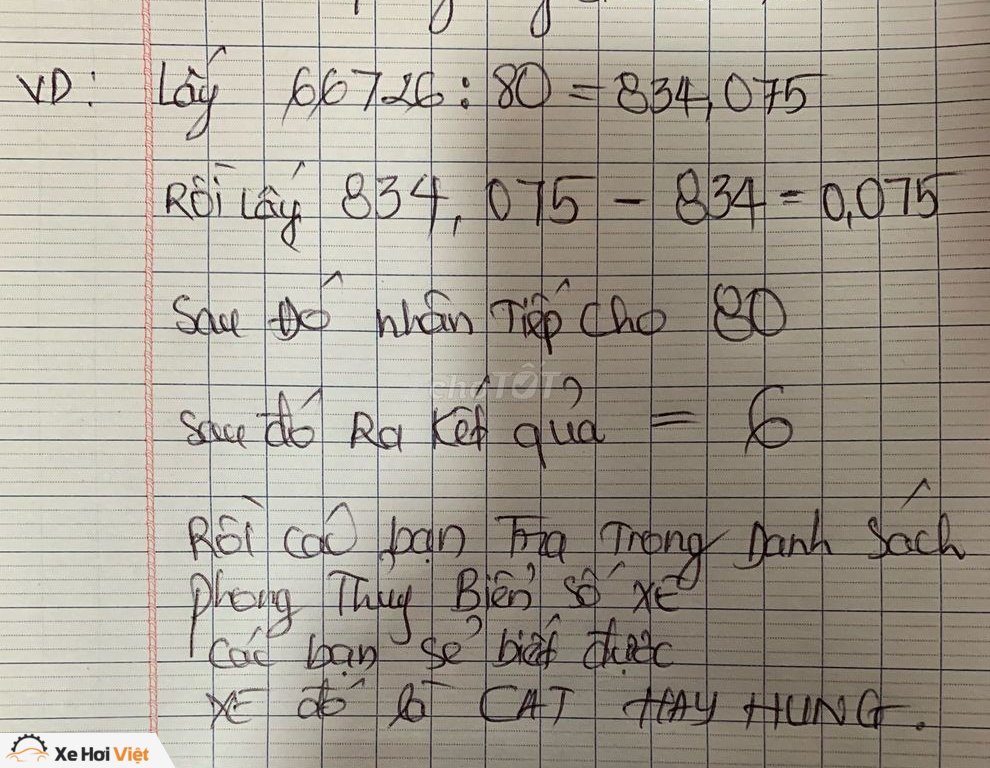 VD: Lấy 66726 : 80 = 834,075
Rồi lấy 834,075 - 834 = 0,075
Sau Đó nhân Tiếp Cho 80
chợTỐT
Sau đó Ra Kết quả = 6
Rồi các bạn Tra Trong Danh Sách
phong Thuỷ Biển số XE
Các bạn sẻ biết được
XE đó là CÁT HAY HUNG.
Xe Hơi Việt